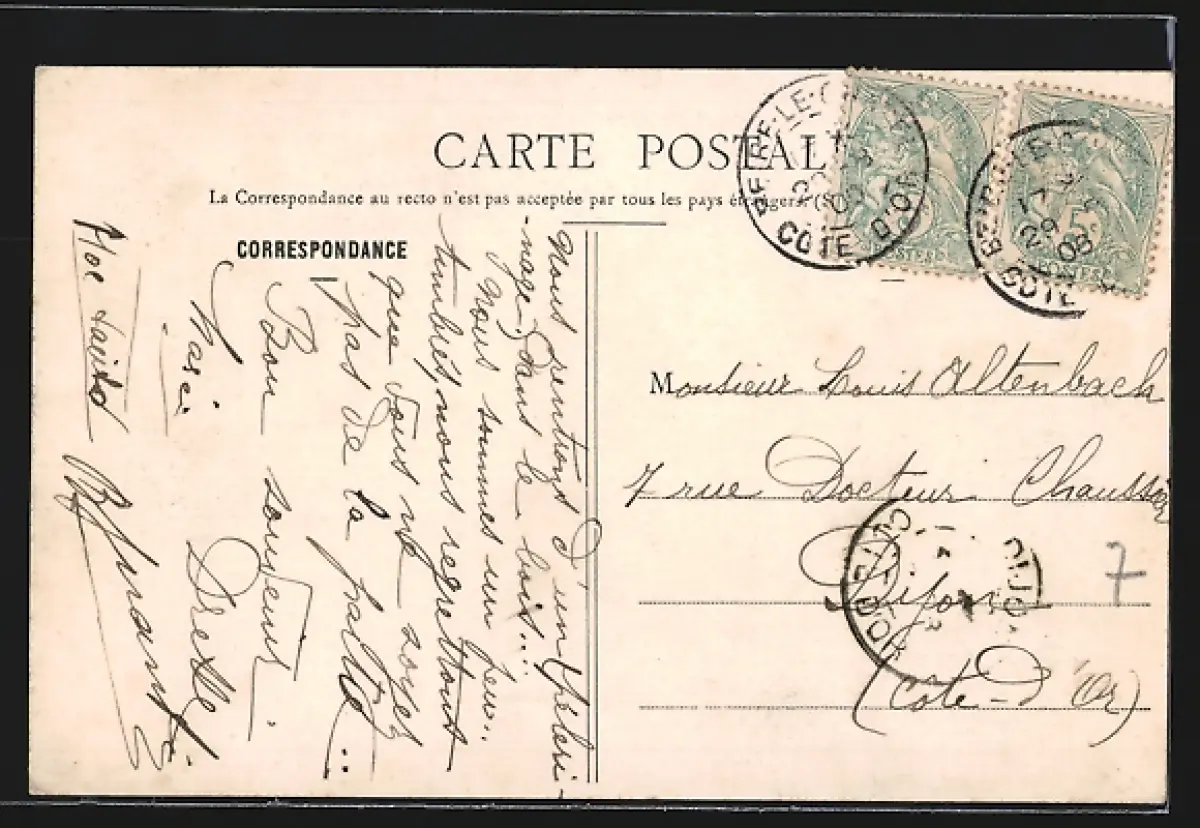 CARTE POSTALE
La Correspondance au recto n'est pas acceptée par tous les pays étrangers
CORRESPONDANCE
Nous rentrons d'un pèleri-
-nage, dans le bois...
Nous sommes un peu..
timbrés, nous regrettons
que vous ne soyez
pas de la partie...
Bon souvenir.
Marie
Monsieur Louis Altenbach
7 rue Docteur Chaussier
Dijon
(Côte-d'Or)
7
COTE D'OR
17
29
08
COTE
5c
POSTES
DIJON
COTE D'OR